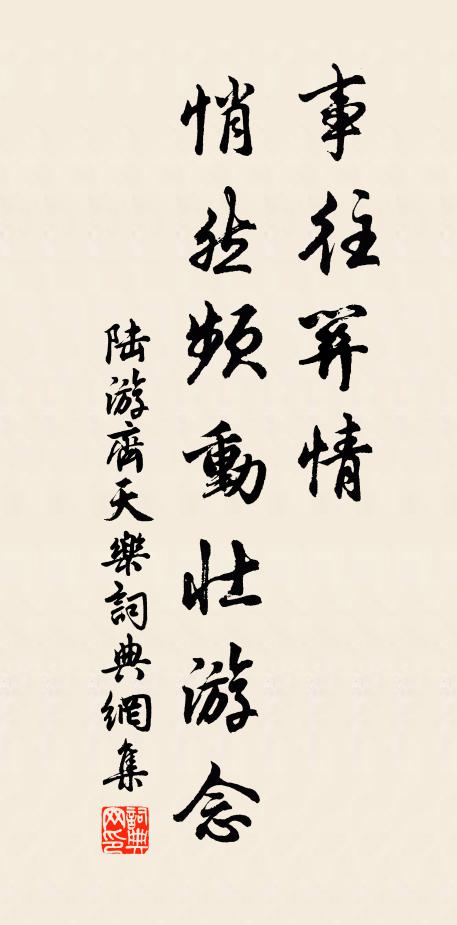 事往關情
悄然頻動壯游念
陆游齊天樂詞典網集
詞典網印